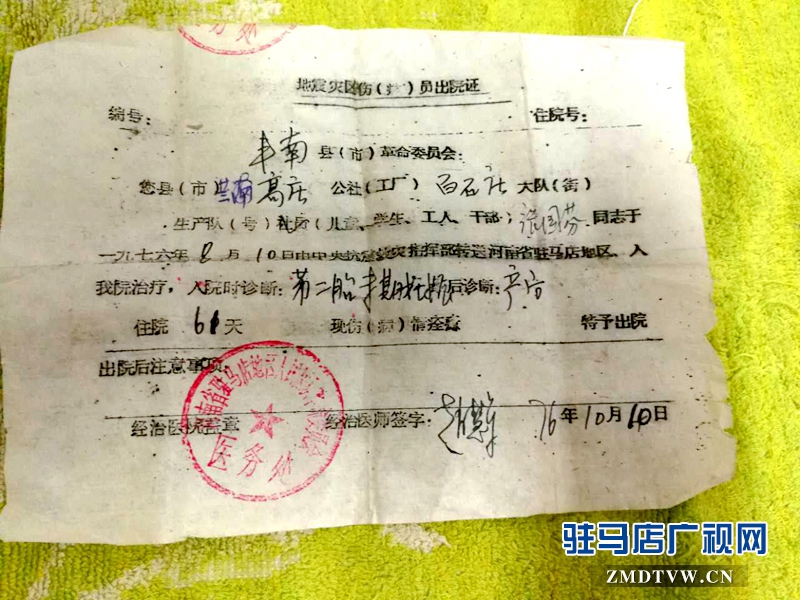 地震灾区伤（病）员出院证
编号： 住院号：
丰南县（市）革命委员会：
您县（市）高庄公社（工厂）百石庄大队（街）
生产队（号）社员（儿童、学生、工人、干部）国芬同志于
一九七六年8月10日由中央抗震救灾指挥部转送河南省驻马店地区，入
我院治疗，入院时诊断：第二胎 后诊断：产后
住院61天 现伤（病）情痊愈 特予出院
出院后注意事项：
经治医院盖章 经治医师签字： 76年10月10日
医务
驻马店广视网
ZMDTVW.CN